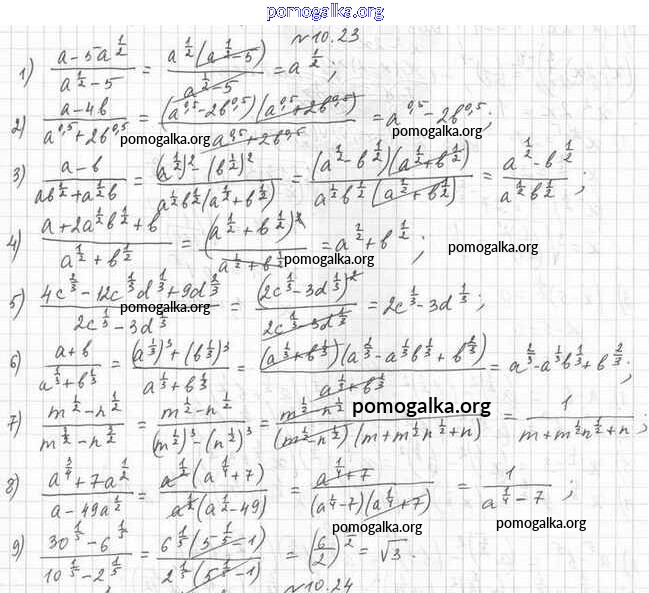 pomogalka.org
№10.23
1) (a-5a^(1/2))/(a^(1/2)-5) = (a^(1/2)(a^(1/2)-5))/(a^(1/2)-5) = a^(1/2);
2) (a-4b)/(a^0,5+2b^0,5) = ((a^0,5-2b^0,5)(a^0,5+2b^0,5))/(a^0,5+2b^0,5) = a^0,5-2b^0,5;
pomogalka.org pomogalka.org
3) (a-b)/(ab^(1/2)+a^(1/2)b) = ((a^(1/2))^2-(b^(1/2))^2)/(a^(1/2)b^(1/2)(a^(1/2)+b^(1/2))) = ((a^(1/2)-b^(1/2))(a^(1/2)+b^(1/2)))/(a^(1/2)b^(1/2)(a^(1/2)+b^(1/2))) = (a^(1/2)-b^(1/2))/(a^(1/2)b^(1/2));
4) (a+2a^(1/2)b^(1/2)+b)/(a^(1/2)+b^(1/2)) = ((a^(1/2)+b^(1/2))^2)/(a^(1/2)+b^(1/2)) = a^(1/2)+b^(1/2);
pomogalka.org
pomogalka.org
5) (4c^(2/3)-12c^(1/3)d^(1/3)+9d^(2/3))/(2c^(1/3)-3d^(1/3)) = ((2c^(1/3)-3d^(1/3))^2)/(2c^(1/3)-3d^(1/3)) = 2c^(1/3)-3d^(1/3);
pomogalka.org
6) (a+b)/(a^(1/3)+b^(1/3)) = ((a^(1/3))^3+(b^(1/3))^3)/(a^(1/3)+b^(1/3)) = ((a^(1/3)+b^(1/3))(a^(2/3)-a^(1/3)b^(1/3)+b^(2/3)))/(a^(1/3)+b^(1/3)) = a^(2/3)-a^(1/3)b^(1/3)+b^(2/3);
7) (m^(1/2)-n^(1/2))/(m^(3/2)-n^(3/2)) = (m^(1/2)-n^(1/2))/((m^(1/2))^3-(n^(1/2))^3) = (m^(1/2)-n^(1/2))/((m^(1/2)-n^(1/2))(m+m^(1/2)n^(1/2)+n)) = 1/(m+m^(1/2)n^(1/2)+n);
pomogalka.org
8) (a^(3/4)+7a^(1/2))/(a-49a^(1/2)) = (a^(1/2)(a^(1/4)+7))/(a^(1/2)(a^(1/2)-49)) = (a^(1/4)+7)/((a^(1/4)-7)(a^(1/4)+7)) = 1/(a^(1/4)-7);
pomogalka.org pomogalka.org
9) (30^(1/5)-6^(1/5))/(10^(1/5)-2^(1/5)) = (6^(1/5)(5^(1/5)-1))/(2^(1/5)(5^(1/5)-1)) = (6/2)^(1/2) = √3.
№10.24